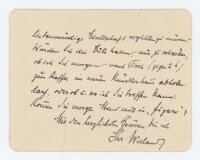 liebenswürdige Gesellschaft verzichten zu müssen.
Würden Sie die Güte haben, mir zu schreiben,
ob ich Sie morgen nach Tisch (gegen 2 h)
zum Kaffee im neuen Künstlerhaus abholen
darf, oder ob u. wo ich Sie treffen kann.
Können Sie morgen Abend mit in „Figaro“?
Mit den herzlichsten Grüssen bin ich
Ihr Wieland